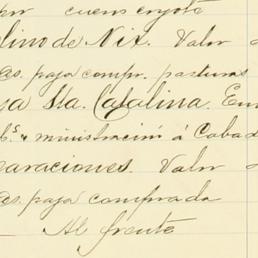 por cuem coyote
lino de Nix. Valor
as. paja compr. pasturas
ga Sta. Catalina. Em
b.s y ministración á Cabad
araciones. Valor
as. paja comprada
Al frente